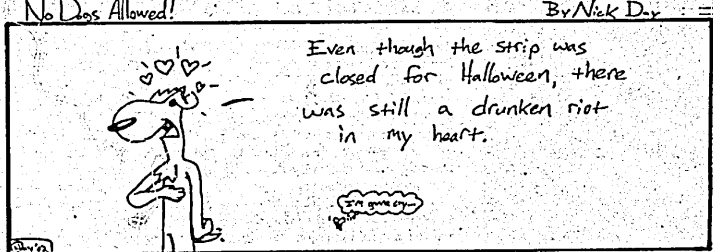 No Dogs Allowed!
By Nick Day
Even though the strip was
closed for Halloween, there
was still a drunken riot
in my heart.
I'm gonna cry...